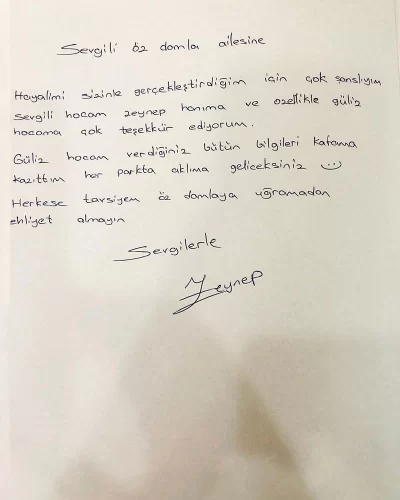 Sevgili öz damla ailesine
Hayalimi sizinle gerçekleştirdiğim için çok şanslıyım
Sevgili hocam zeynep hanıma ve özellikle güliz
hocama çok teşekkür ediyorum.
Güliz hocam verdiğiniz bütün bilgileri kafama
kazıttım her parkta aklıma geliceksiniz
Herkese tavsiyem öz damlaya uğramadan
ehliyet almayın
Sevgilerle
Zeynep